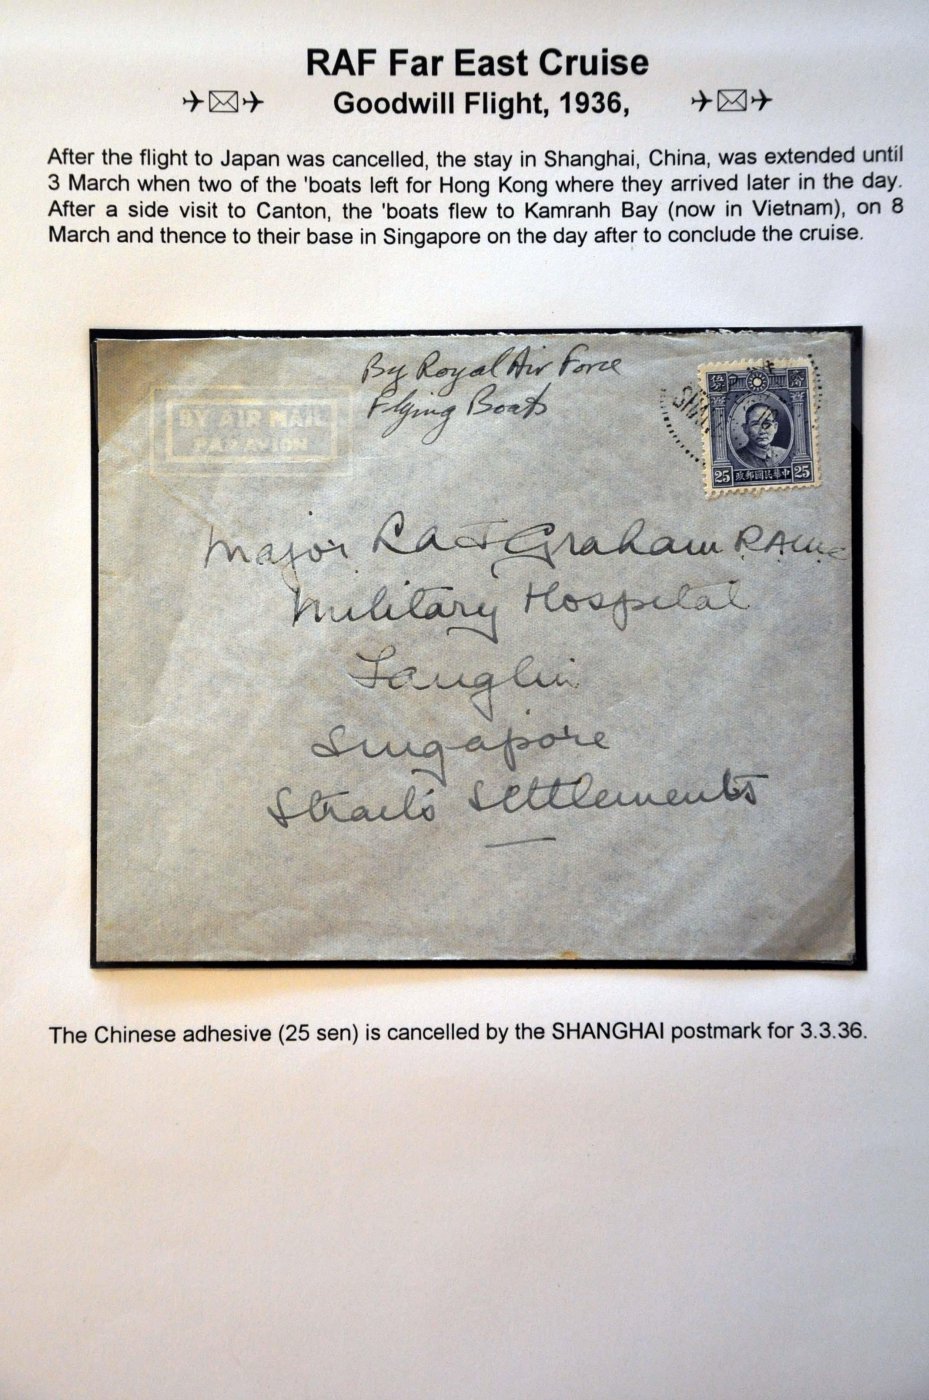 RAF Far East Cruise
✈✉✈ Goodwill Flight, 1936, ✈✉✈
After the flight to Japan was cancelled, the stay in Shanghai, China, was extended until
3 March when two of the 'boats left for Hong Kong where they arrived later in the day.
After a side visit to Canton, the 'boats flew to Kamranh Bay (now in Vietnam), on 8
March and thence to their base in Singapore on the day after to conclude the cruise.
By Royal Air Force
Flying Boats
BY AIR MAIL
PAR AVION
SHA
25 政郵國民華中 25
Major Graham RAMC
Military Hospital
Tanglin
Singapore
Straits Settlements
The Chinese adhesive (25 sen) is cancelled by the SHANGHAI postmark for 3.3.36.